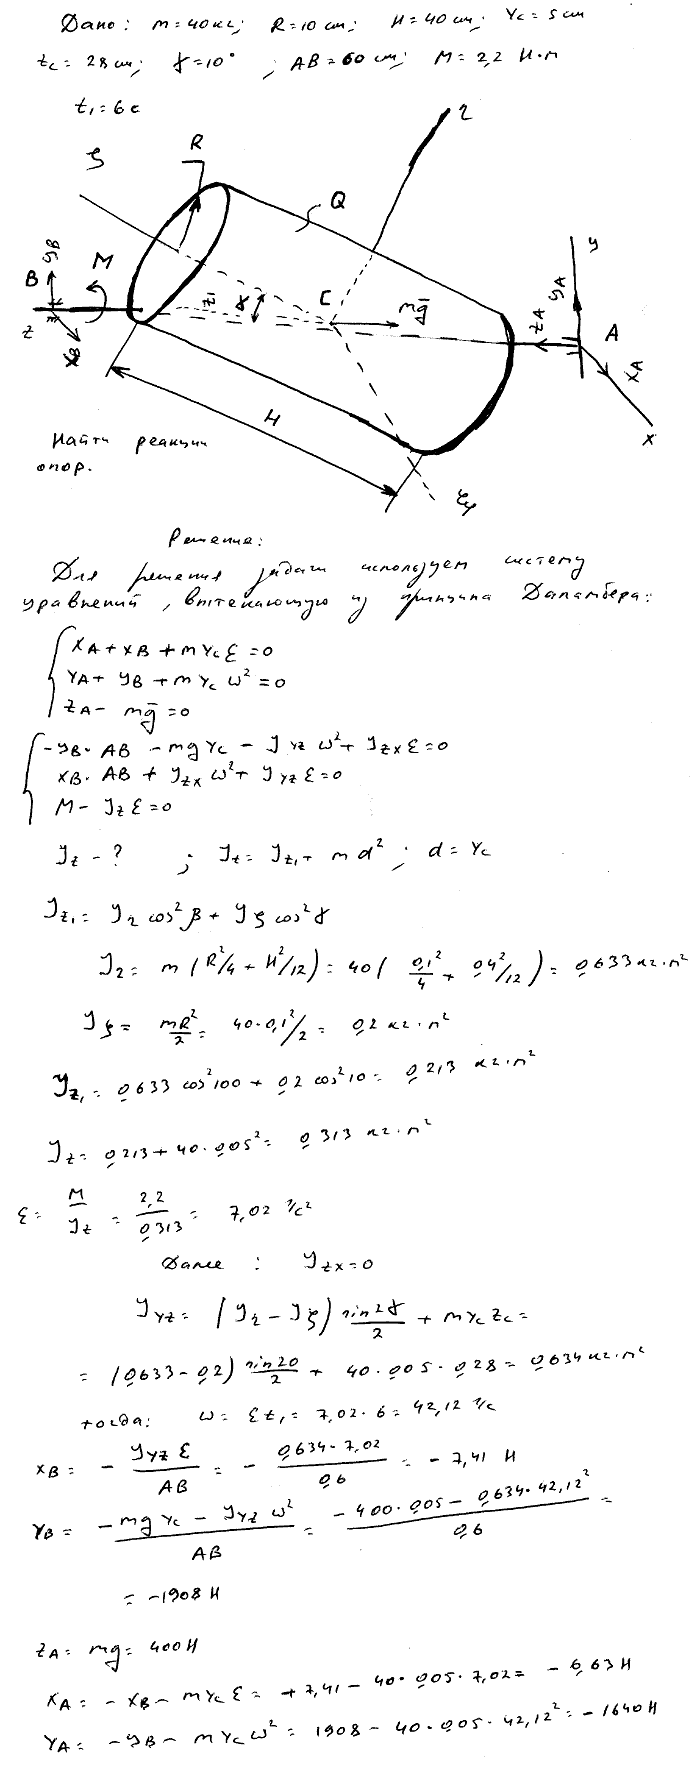 Дано: m=40кг; R=10 см; H=40 см; Yc=5 см
zc=28см; γ=10°; AB=60 см; M=2,2 Н·м
t₁=6с
ζ R Q η
B yB M z₁ γ C mḡ zA yA y A
z xB xA x
H ξ
Найти реакции
опор.
Решение:
Для решения задачи используем систему
уравнений, вытекающую из принципа Даламбера:
XA+XB+mYcε=0
YA+yB+mYcω²=0
zA-mḡ=0
-yB·AB-mgYc-Jyzω²+Jzxε=0
XB·AB+Jzxω²+Jyzε=0
M-Jzε=0
Jz-? ; Jz=Jz₁+md²; d=Yc
Jz₁=Jηcos²β+Jζcos²γ
Jη=m(R²/4+H²/12)=40(0,1²/4+0,4²/12)=0,633кг·м²
Jζ=mR²/2=40·0,1²/2=0,2 кг·м²
Jz₁=0,633 cos²100+0,2 cos²10=0,213 кг·м²
Jz=0,213+40·0,05²=0,313 кг·м²
ε=M/Jz=2,2/0,313=7,02 1/с²
Далее: Jzx=0
Jyz=(Jη-Jζ)sin2γ/2+mYczc=
=(0,633-0,2)sin20/2+40·0,05·0,28=0,634кг·м²
тогда: ω=εt₁=7,02·6=42,12 1/с
XB=-Jyzε/AB=-0,634·7,02/0,6=-7,41 Н
YB=-mgYc-Jyzω²/AB=-400·0,05-0,634·42,12²/0,6=
=-1908 Н
zA=mg=400Н
XA=-XB-mYcε=+7,41-40·0,05·7,02=-6,63 Н
YA=-yB-mYcω²=1908-40·0,05·42,12²=-1640 Н